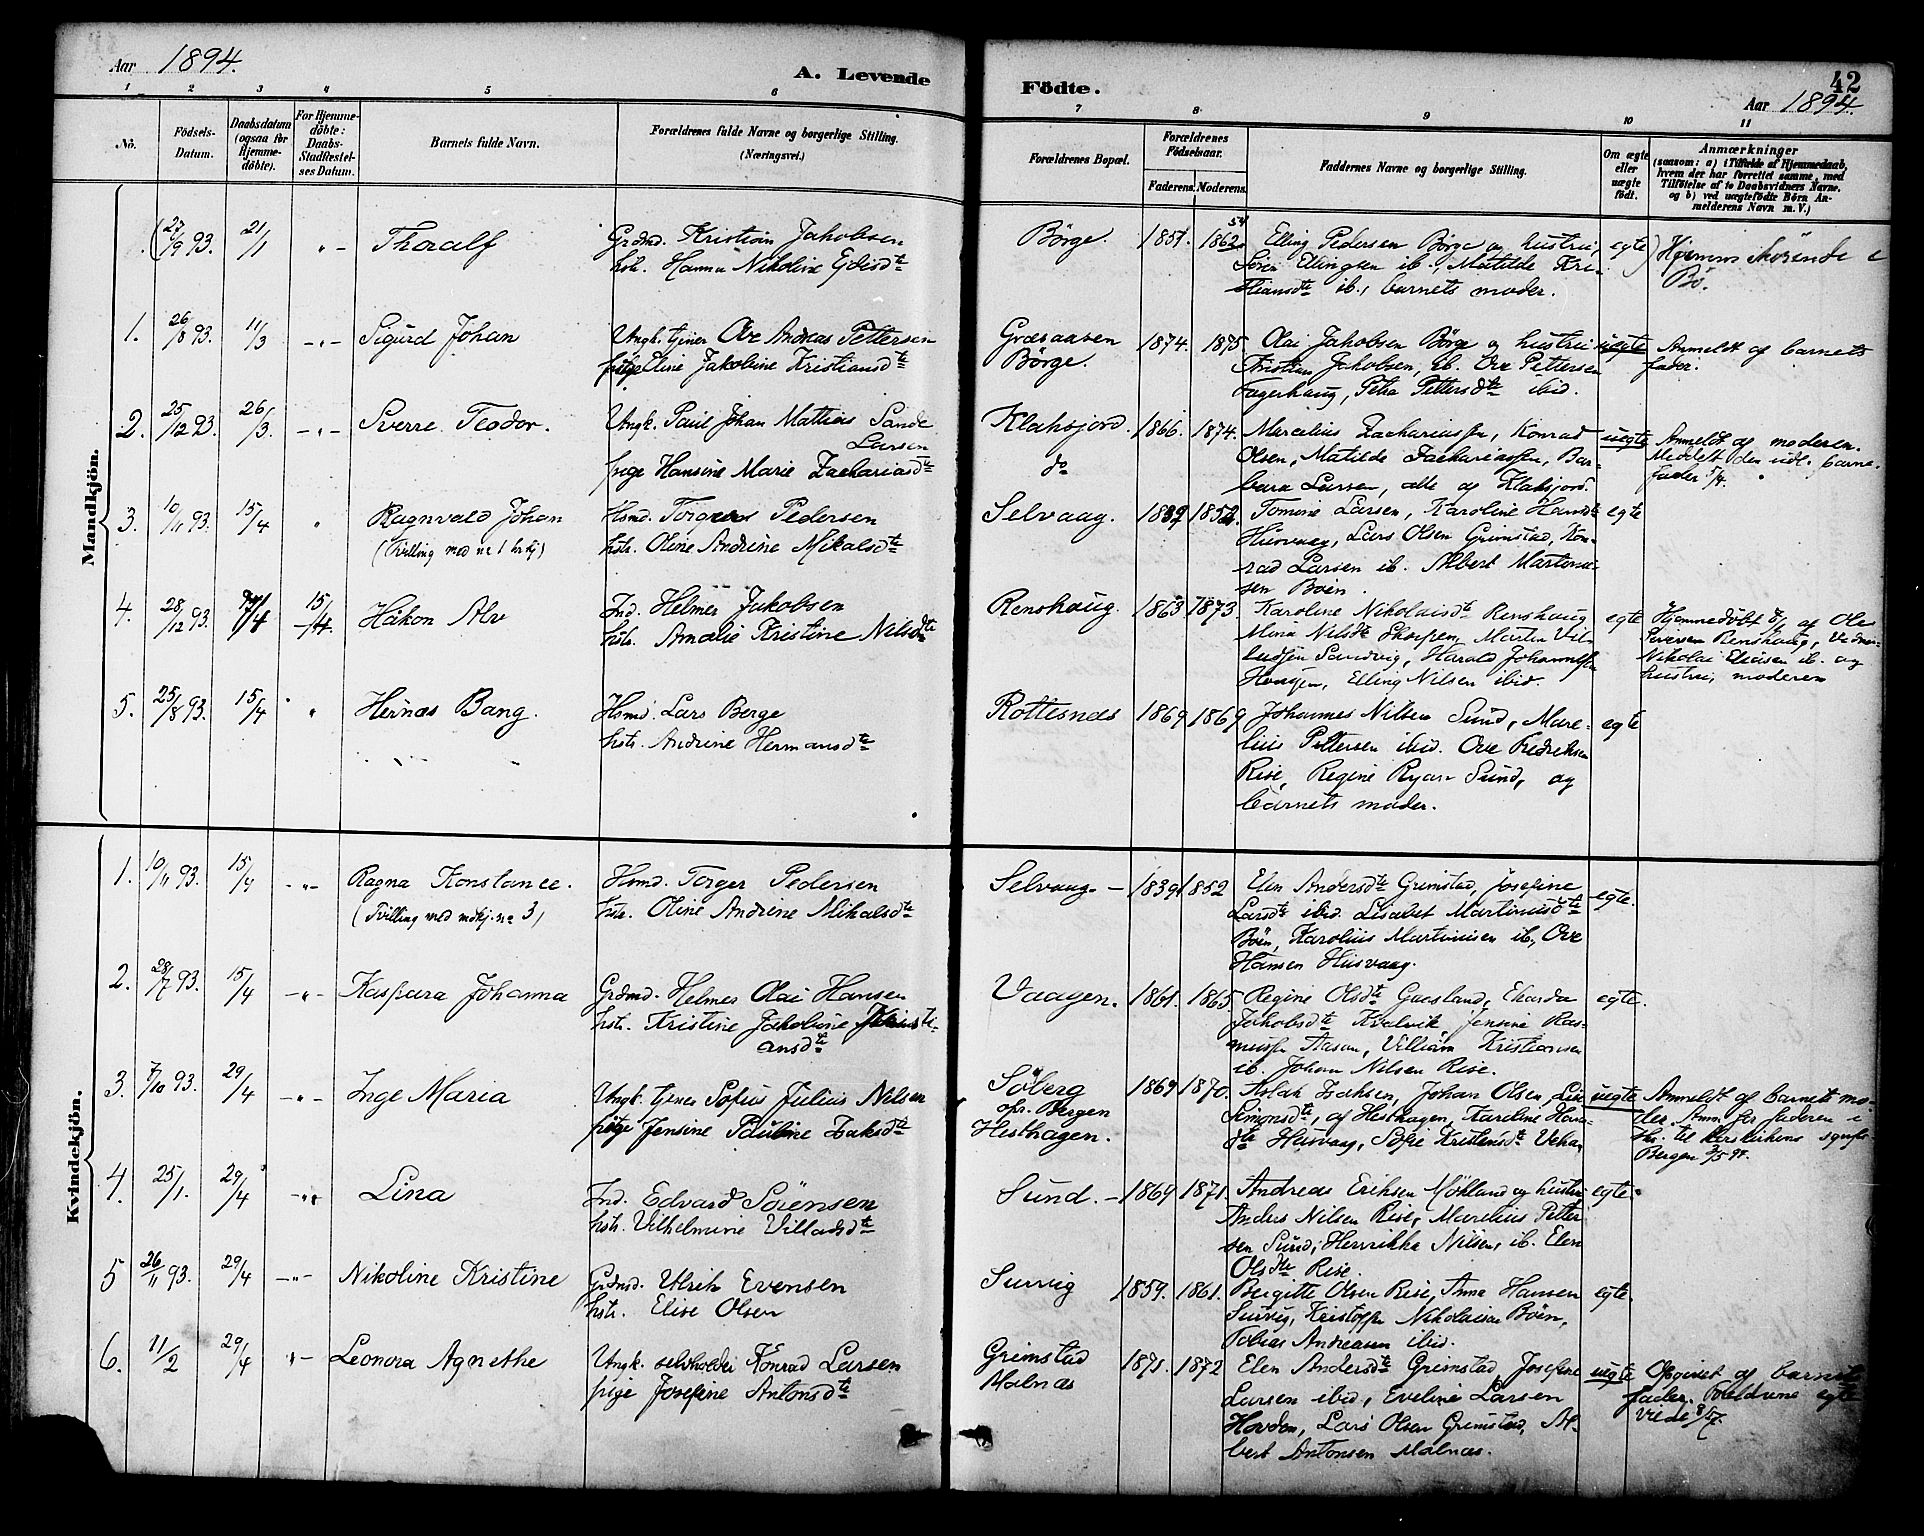 Aar 1894.
A. Levende
Födte.
42
Aar 1894.
1 2 3 4 5 6 7 8 9 10 11
No.
Födsels-
Datum.
Daabsdatum
(ogsaa for
Hjemme-
döbte).
For Hjemme-
döbte:
Daabs-
Stadfæstel-
ses Datum.
Barnets fulde Navn.
Forældrenes fulde Navne og borgerlige Stilling.
(Næringsvei.)
Forældrenes Bopæl.
Forældrenes
Födselsaar.
Faderens. Moderens.
Faddernes Navne og borgerlige Stilling.
Om ægte
eller
uægte
födt.
Anmærkninger
(saasom: a) i Tilfælde af Hjemmedaab,
hvem der har forrettet samme, med
Tilföielse af to Daabsvidners Navne.
og b) ved uægtefödte Börn An-
melderens Navn m. V.)
Mandkjön.
(27/9 93. 21/1 " - Thoralf
Grdmd. Kristian Jakobsen
hstr. Hanna Nikoline
Börge. 1851. 1862. 54
Elling Pedersen Börge og hustru,
Sören Ellingsen ib., Matilde Kri-
stiansdte ib., barnets moder.
egte)
Bö.
1. 26/8 93. 11/3 -"- Sigurd Johan
Ungk. tjener Ove Andreas Pettersen
pige Eline Jakobine Kristiansdte
Græsaasen
Börge.
1874. 1875.
Olai Jakobsen Börge og hustru
Kristian Jakobsen, ib. Ove Pettersen
Fagerhaug, Petra Pettersdte ibid.
uegte
Anmeldt af barnets
fader.
2. 25/12 93. 26/3. -"- Sverre Teodor.
Ungk. Paul Johan Mathias Sande
Larsen
pige Hansine Marie Zachariasdte
Klaksjord.
do
1866. 1874.
Marcelius Zachariassen, Konrad
Olsen, Matilde Zachariassen, Bar-
bara Larsen, alle af Klaksjord.
uegte
Anmeldt af moderen.
Meddelt den udl. barne-
fader 5/4.
3. 10/11 93. 15/4 " Ragnvald Johan
(Tvilling med no 1 kvkj)
Hsmd. Torger Pedersen
hstr. Oline Andrine Mikalsdte
Selvaag. 1839 1852.
Tomine Larsen, Karoline Hansdte
Husvaag, Lars Olsen Grimstad, Kon-
rad Larsen ib. Albert Martinu-
sen Böen.
egte
4. 28/12 93. 15/4. Håkon Alv
Ind. Helmer Jakobsen
hstr. Amalie Kristine Nilsdte
Renshaug. 1863 1873.
Karoline Nikolaisdte Renshaug
Mina Nilsdte
Sandvig, Harald Johannessen
Elling Nilsen ibid.
egte
Hjemmedöbt af Ole
Renshaug,
Nikolai Eliasen ib. og
hustru, moderen
5. 25/8 93. 15/4 " Hernæs Bang.
Hsmd. Lars Berge
hstr. Andrine Hermansdte
Rottesnes 1869 1869
Johannes Nilsen Sund, Mare-
lius Pettersen ibid. Ove Fredriksen
Rise, Regine Ryan Sund, og
barnets moder.
egte
Kvindekjön.
1. 10/11 93. 15/4 -"- Ragna Konstance.
(Tvilling med mdkj. no 3)
Hsmd. Torger Pedersen
hstr. Oline Andrine Mikalsdte
Selvaag. - 1839 1852
Elen Andersdte Grimstad, Josefine
Larsdte ibid. Lisabet Martinusdte
Böen, Karolius Martinusen ib., Ove
Hansen Husvaag.
egte.
2. 28/7 93. 15/4 -"- Kaspara Johanna
Grdmd. Helmer Olai Hansen
hstr. Kristine Jakobine Kristi-
ansdte
Vaagen. 1861. 1865.
Regine Olsdte Gaasland,
Jakobsdte Kvalvik, Jensine Ras-
mussen Aasan, Villiam Kristiansen
ib. Johan Nilsen Rise.
egte.
3. 7/10 93. 29/4 -"- Inge Maria
Ungk. tjener Sofus Julius Nilsen
pige Jensine Pauline Isaksdte
Söberg
opr. Bergen
Hesthagen.
1869 1870.
Aslak Isaksen, Johan Olsen,
Simonsdte, af Hesthagen, Karoline Han-
dte Husvaag, Sofie Kristensdte
uegte
Anmeldt af barnets mo-
der. Anm. fra faderen i
til Korskirkens
Bergen 3/5 94.
4. 25/1. 29/4 -"- Lina
Ind. Edvard Sörensen
hstr. Vilhelmine Villadsdte
Sund. - 1869 1871.
Andreas Eriksen Mökland og hustru
Anders Nilsen Rise, Marelius Petter-
sen Sund, Henrikke Nilsen, ib. Elen
Olsdte Rise.
egte.
5 26/11 93. 29/4 -"- Nikoline Kristine
Grdmd. Ulrik Evensen
hstr. Elise Olsen
Survig 1859. 1861.
Birgitte Olsen Rise, Anna Hansen
Survig, Kristoffer Nikolaisen Böen,
Tobias Andreasen ibid.
egte.
6. 11/2 29/4 "- Leonora Agnethe
Ungk. selvholder Konrad Larsen
pige Josefine Antonsdte
Grimstad
Malnæs
1871. 1872
Elen Andersdte Grimstad, Josefine
Larsen ibid, Eveline Larsen
Hovden, Lars Olsen Grimstad, Al-
bert Antonsen Malnæs.
uegte
Opgivet af barnets
fader. Forældrene egte
viede 8/7.